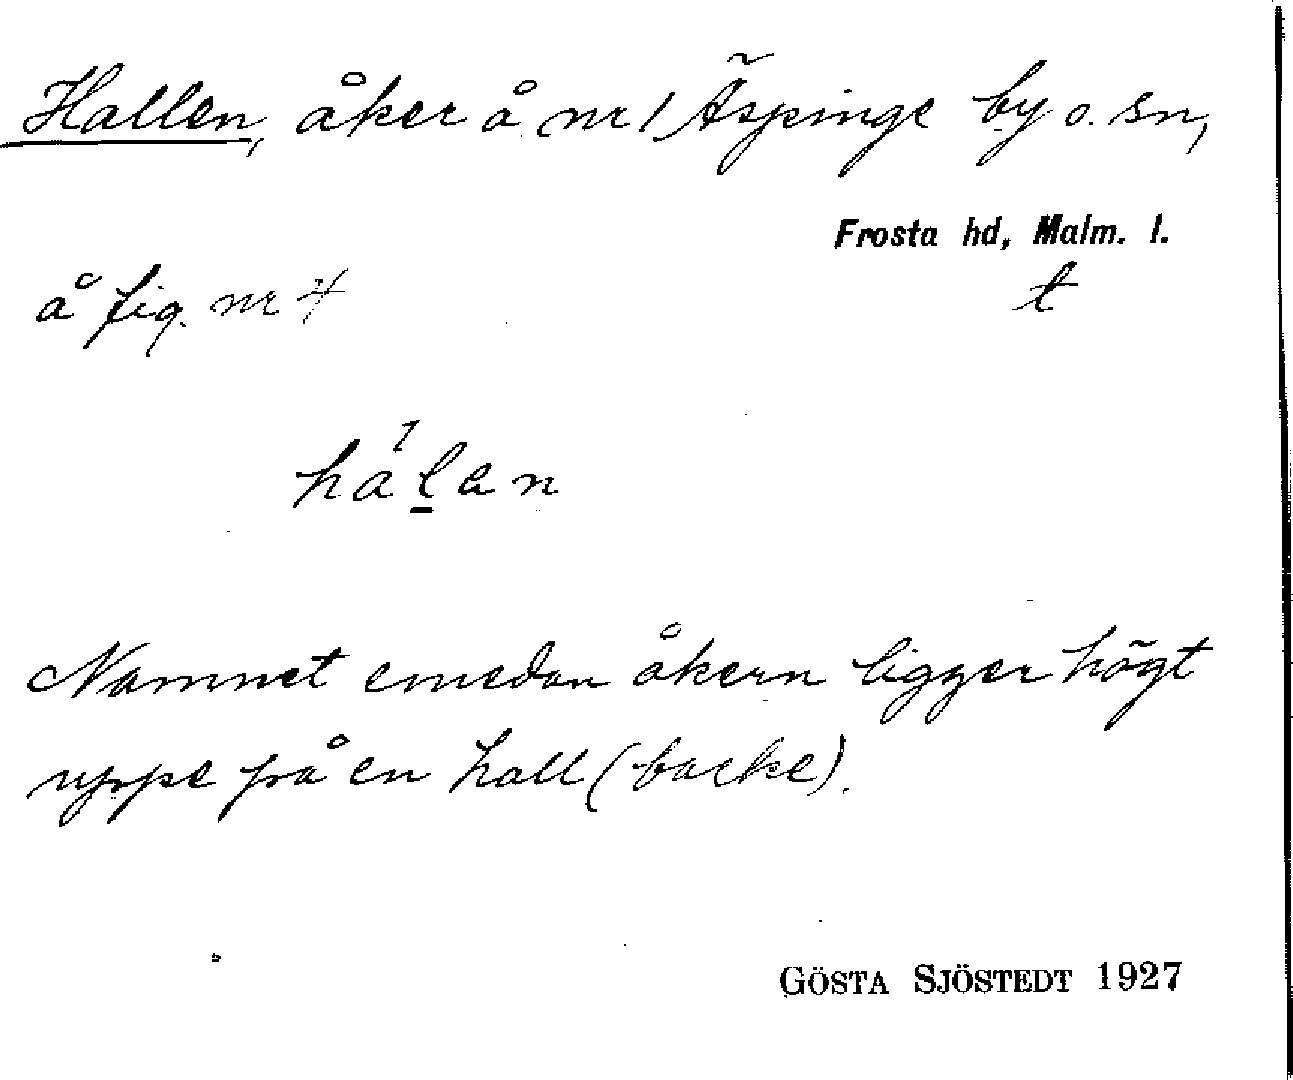 Hallen, åker å nr 1 Äspinge by o. sn,
Frosta hd, Malm. l.
å fig. nr 4
t
Namnet emedan åkern ligger högt
uppe på en hall (backe).
GÖSTA SJÖSTEDT 1927